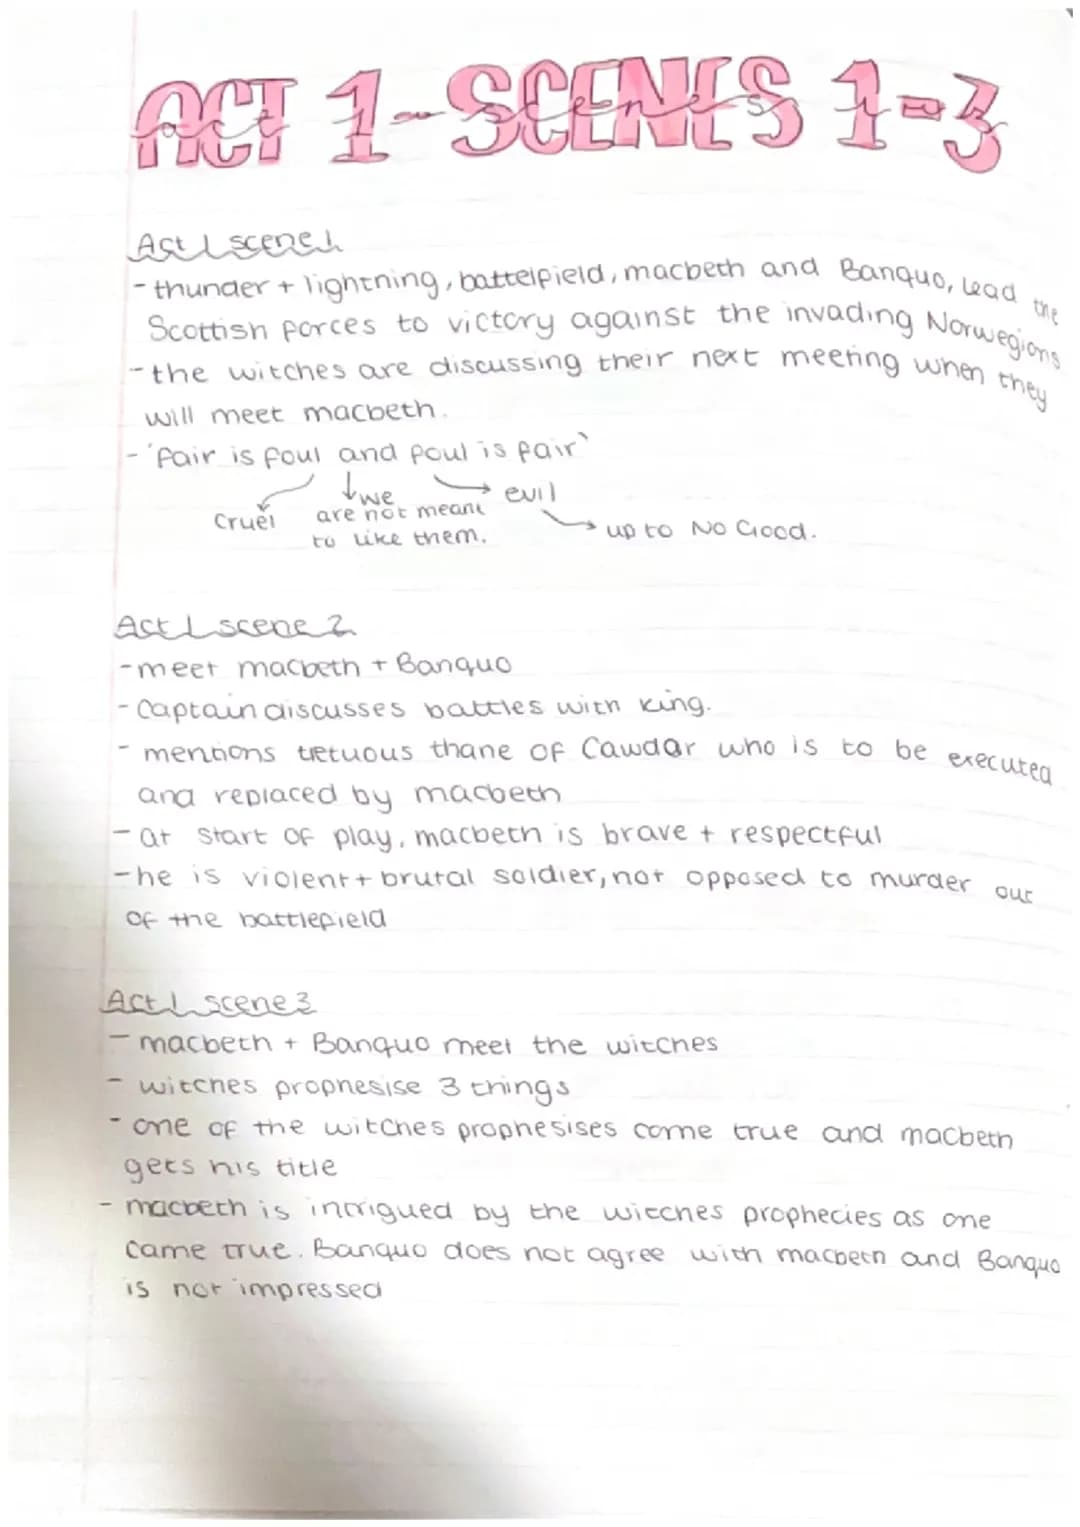 ACT 1-SCENES 1-3
Act 1 scenes 1-3
Act 1 scene 1
- thunder + lightning, battelfield, macbeth and Banquo, lead the
Scottish forces to victory against the invading Norwegions
- the witches are discussing their next meeting when they
will meet macbeth.
- 'fair is foul and foul is fair'
cruel
we
are not meant
to like them.
evil
up to No Good.
Act 1 scene 2
- meet macbeth + Banquo
- Captain discusses battles with king.
- mentions tretuous thane of Cawdar who is to be executed
and replaced by macbeth
- at start of play, macbeth is brave + respectful
- he is violent + brutal soldier, not opposed to murder out
of the battlefield
Act 1 scene 3
- macbeth + Banquo meet the witches
- witches prophesise 3 things
- one of the witches prophesises come true and macbeth
gets his title
- macbeth is intrigued by the witches prophecies as one
came true. Banquo does not agree with macbeth and Banquo
is not impressed